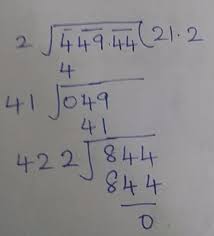 2 √449.44 (21.2
4
41 √049
41
422 √844
844
0